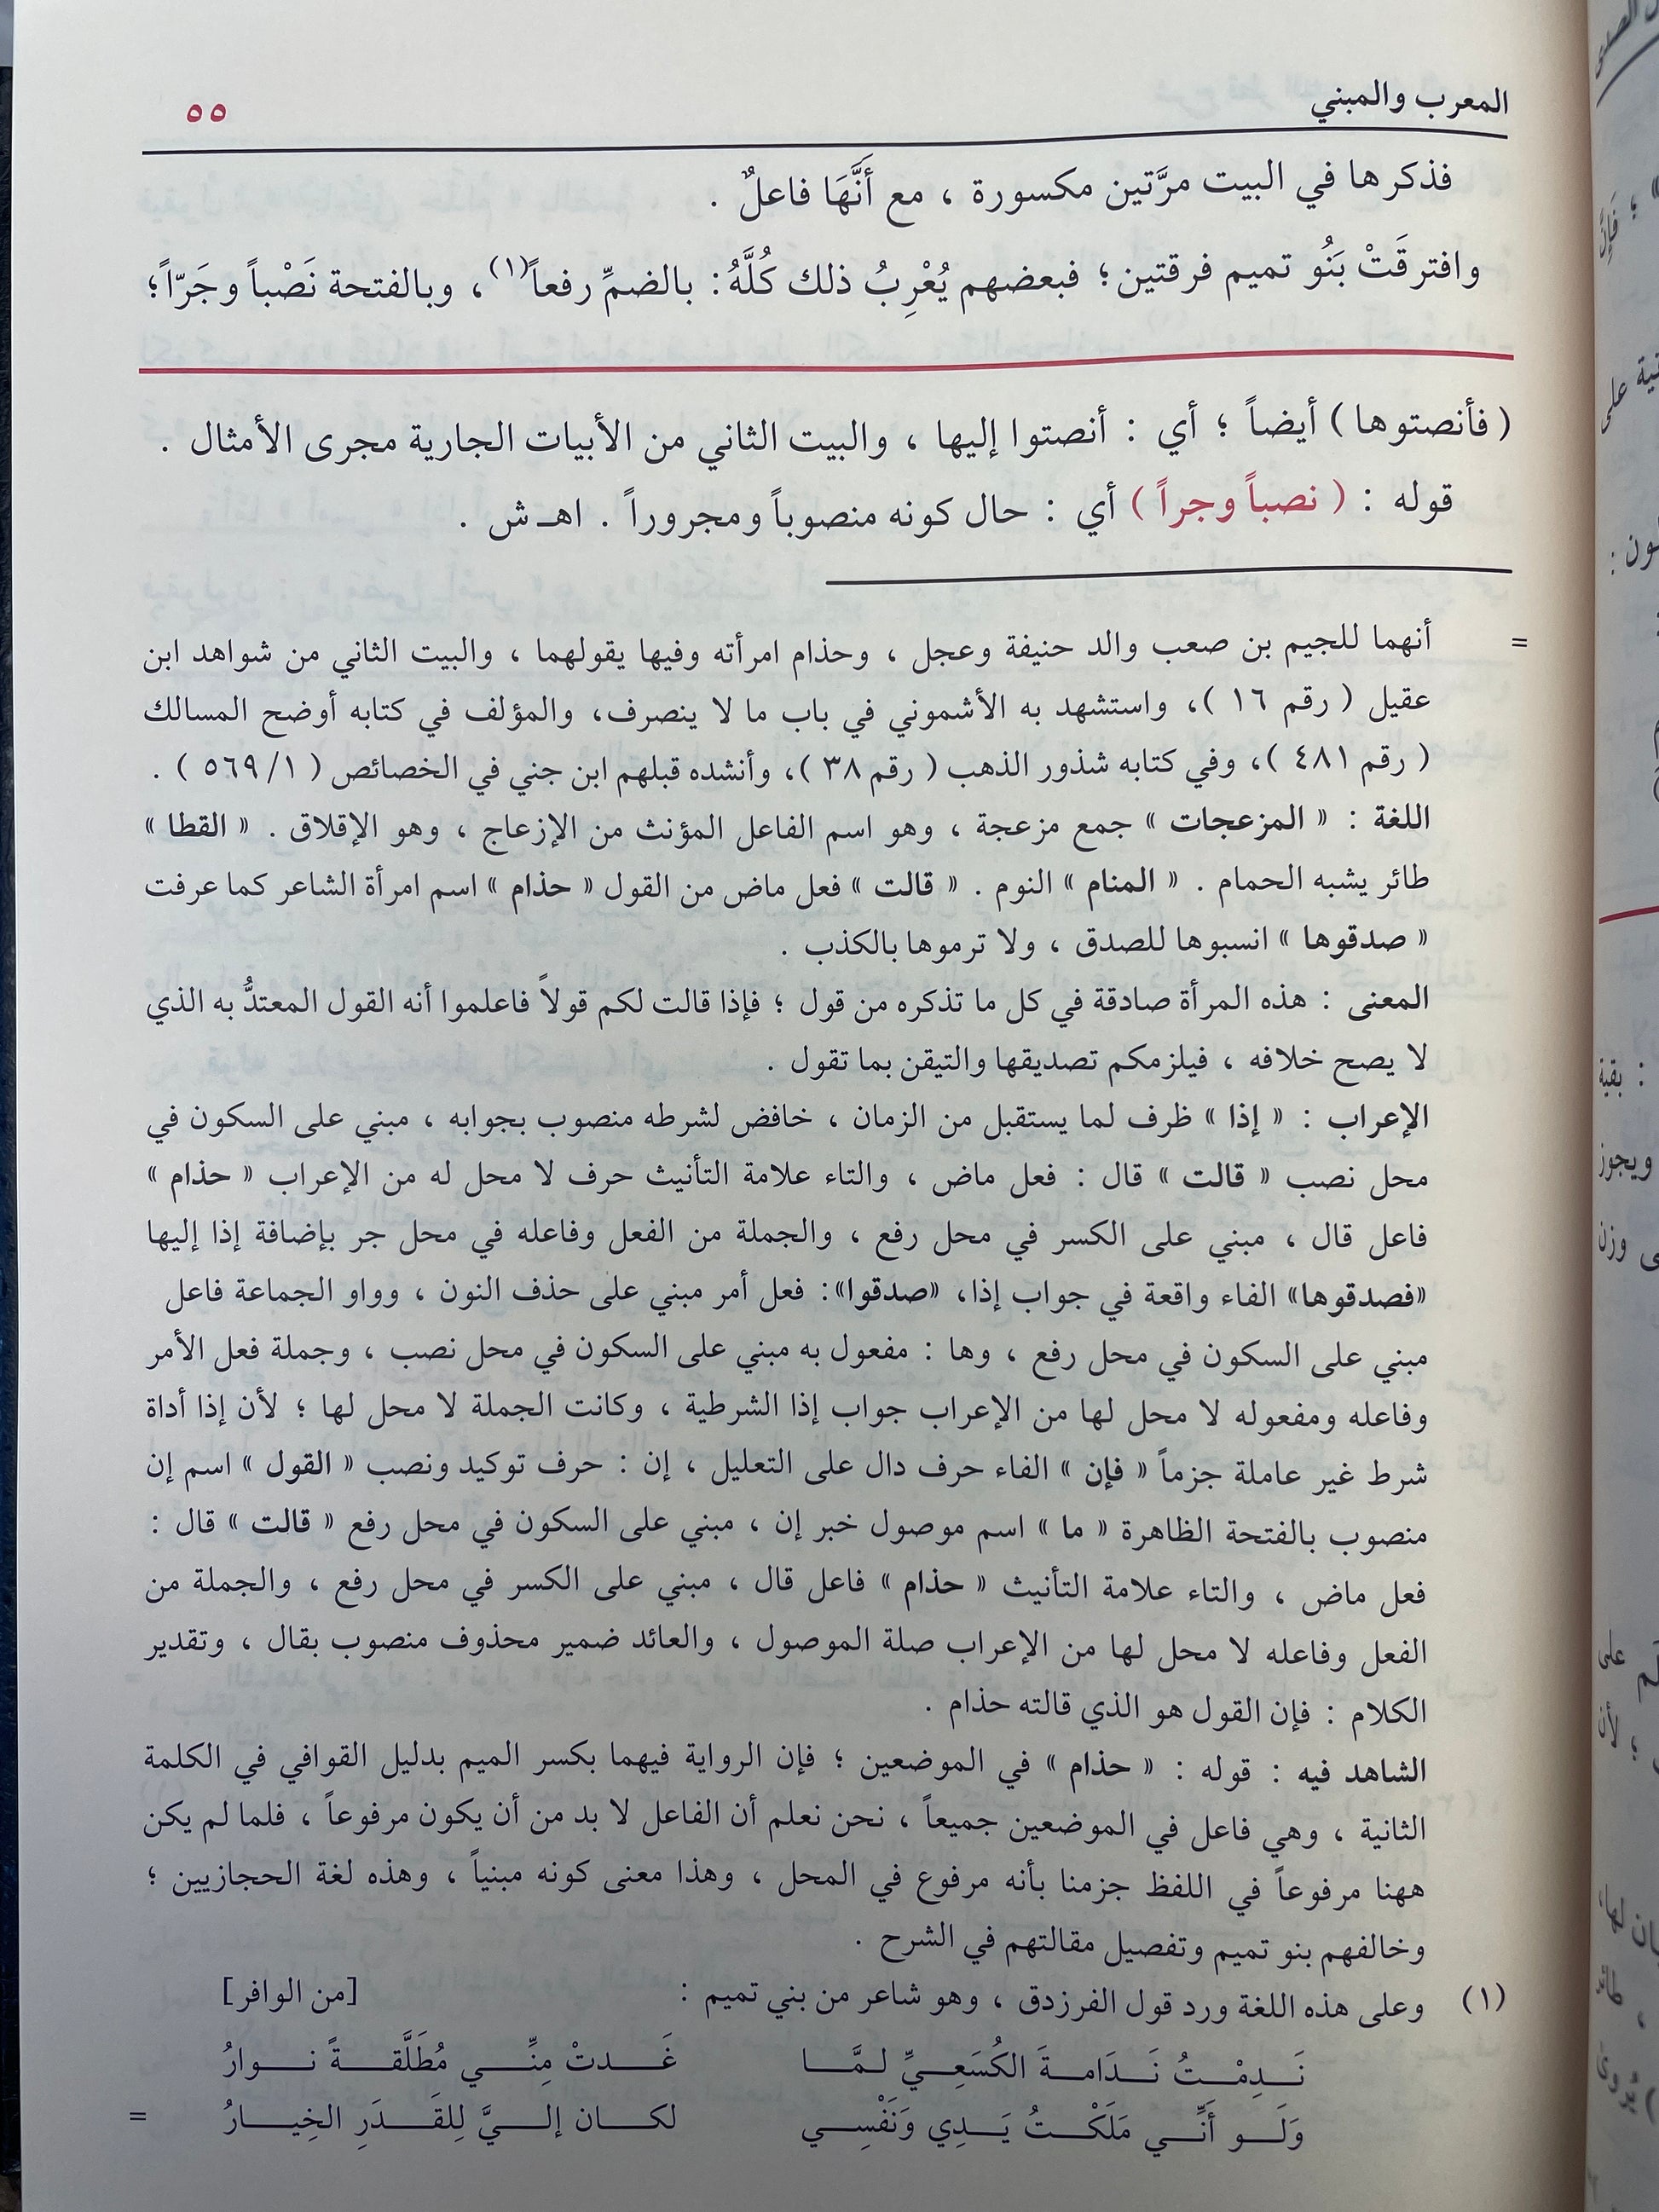 المعرب والمبني
٥٥
فذكرها في البيت مرَّتين مكسورة ، مع أَنَّهَا فاعلٌ .
وافترقَتْ بَنُو تميم فرقتين؛ فبعضهم يُعْرِبُ ذلك كُلَّهُ: بالضمِّ رفعاً(١)، وبالفتحة نَصْباً وجَرّاً؛
( فأنصتوها ) أيضاً ؛ أي : أنصتوا إليها ، والبيت الثاني من الأبيات الجارية مجرى الأمثال .
قوله : ( نصباً وجراً ) أي : حال كونه منصوباً ومجروراً . اهـ ش .
= أنهما للجيم بن صعب والد حنيفة وعجل ، وحذام امرأته وفيها يقولهما ، والبيت الثاني من شواهد ابن
عقيل ( رقم ١٦ )، واستشهد به الأشموني في باب ما لا ينصرف، والمؤلف في كتابه أوضح المسالك
( رقم ٤٨١ )، وفي كتابه شذور الذهب ( رقم ٣٨ )، وأنشده قبلهم ابن جني في الخصائص ( ٥٦٩/١ ) .
اللغة : « المزعجات » جمع مزعجة ، وهو اسم الفاعل المؤنث من الإزعاج ، وهو الإقلاق . « القطا »
طائر يشبه الحمام . « المنام » النوم . « قالت » فعل ماض من القول « حذام » اسم امرأة الشاعر كما عرفت
« صدقوها » انسبوها للصدق ، ولا ترموها بالكذب .
المعنى : هذه المرأة صادقة في كل ما تذكره من قول ؛ فإذا قالت لكم قولاً فاعلموا أنه القول المعتدُّ به الذي
لا يصح خلافه ، فيلزمكم تصديقها والتيقن بما تقول .
الإعراب : « إذا » ظرف لما يستقبل من الزمان ، خافض لشرطه منصوب بجوابه ، مبني على السكون في
محل نصب « قالت » قال : فعل ماض ، والتاء علامة التأنيث حرف لا محل له من الإعراب « حذام »
فاعل قال ، مبني على الكسر في محل رفع ، والجملة من الفعل وفاعله في محل جر بإضافة إذا إليها
«فصدقوها» الفاء واقعة في جواب إذا، «صدقوا»: فعل أمر مبني على حذف النون ، وواو الجماعة فاعل
مبني على السكون في محل رفع ، وها : مفعول به مبني على السكون في محل نصب ، وجملة فعل الأمر
وفاعله ومفعوله لا محل لها من الإعراب جواب إذا الشرطية ، وكانت الجملة لا محل لها ؛ لأن إذا أداة
شرط غير عاملة جزماً « فإن » الفاء حرف دال على التعليل ، إن : حرف توكيد ونصب « القول » اسم إن
منصوب بالفتحة الظاهرة « ما » اسم موصول خبر إن ، مبني على السكون في محل رفع « قالت » قال :
فعل ماض ، والتاء علامة التأنيث « حذام » فاعل قال ، مبني على الكسر في محل رفع ، والجملة من
الفعل وفاعله لا محل لها من الإعراب صلة الموصول ، والعائد ضمير محذوف منصوب بقال ، وتقدير
الكلام : فإن القول هو الذي قالته حذام .
الشاهد فيه : قوله : « حذام » في الموضعين ؛ فإن الرواية فيهما بكسر الميم بدليل القوافي في الكلمة
الثانية ، وهي فاعل في الموضعين جميعاً ، نحن نعلم أن الفاعل لا بد من أن يكون مرفوعاً ، فلما لم يكن
ههنا مرفوعاً في اللفظ جزمنا بأنه مرفوع في المحل ، وهذا معنى كونه مبنياً ، وهذه لغة الحجازيين ؛
وخالفهم بنو تميم وتفصيل مقالتهم في الشرح .
(١) وعلى هذه اللغة ورد قول الفرزدق ، وهو شاعر من بني تميم : [من الوافر]
نَـدِمْـتُ نَـدَامـةَ الكُسَعِـيِّ لـمَّـا غَـدتْ مِنِّـي مُطَلَّقـةً نـوارُ
وَلَـو أَنِّـي مَلَكْـتُ يَـدِي وَنَفْسِـي لكـان إلـيَّ لِلقَـدَرِ الخِيـارُ =